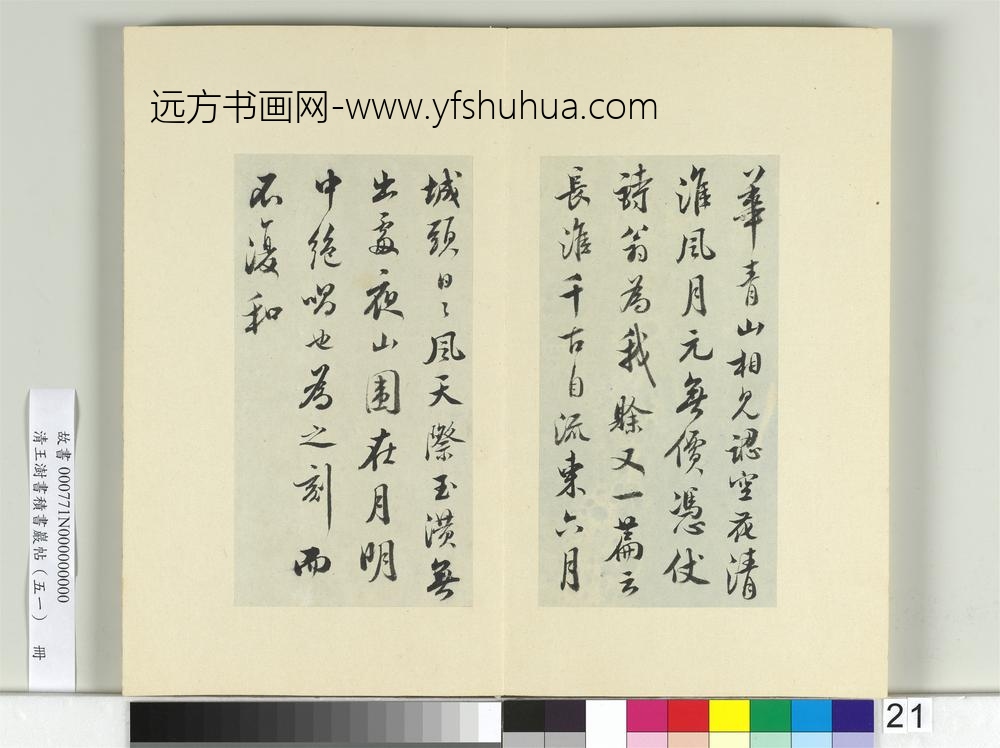 远方书画网-www.yfshuhua.com
華青山相見認空花清
淮風月元無價憑仗
詩翁為我賒又一篇云
長淮千古自流東六月
城頭日〻風天際玉潢無
出處夜山圍在月明
中絶唱也為之刻而
不復和
故書000771N000000000
清王澍書積書巖帖（五一） 冊
21